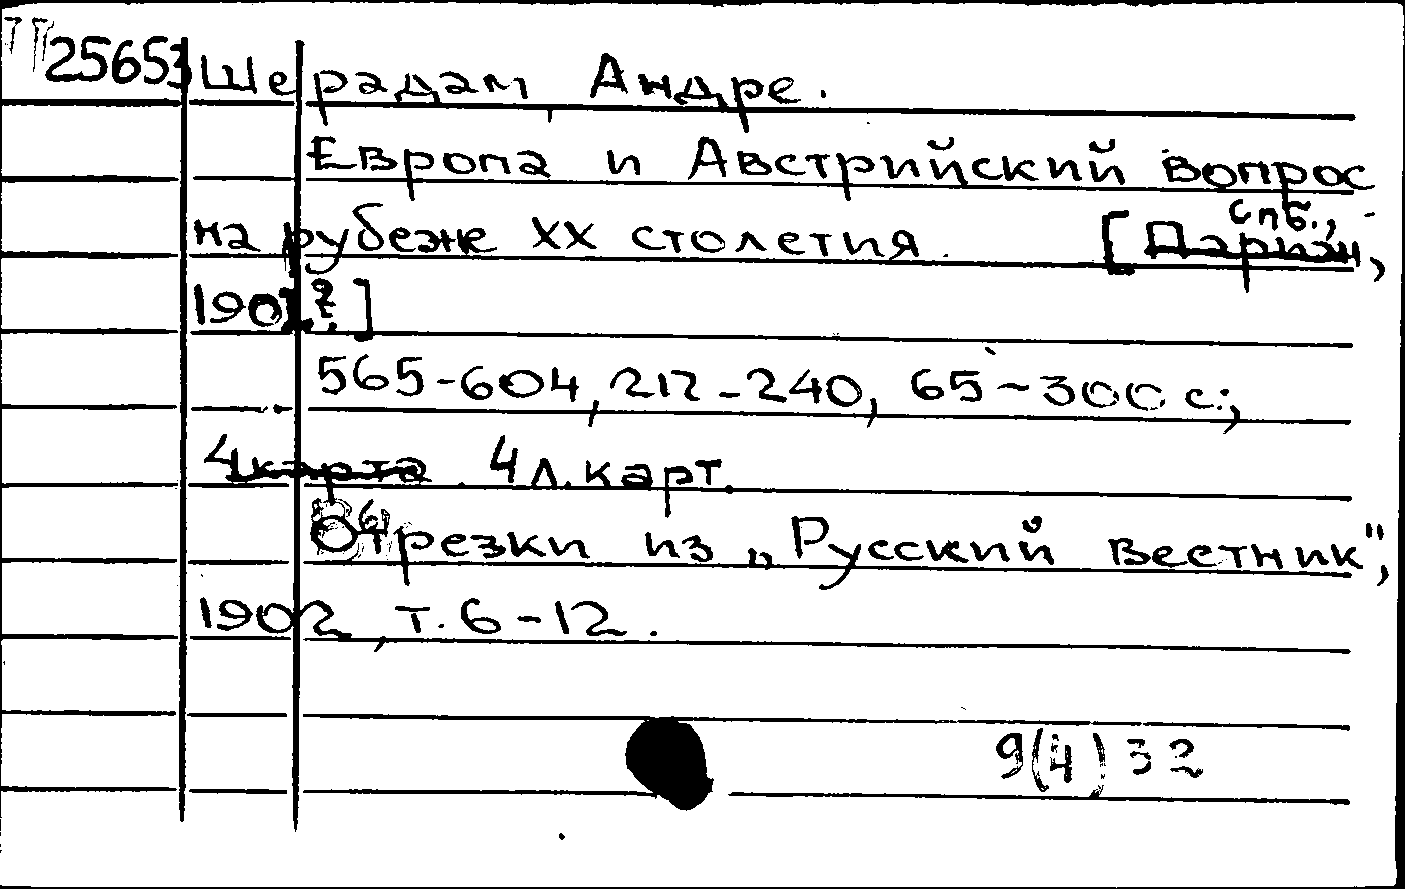 25653 Шерадам, Андре.
Европа и Австрийский вопрос
на рубеже XX столетия. [Спб.,
1902?]
565-604, 212-240, 65-300 с.;
4 л. карт.
Отрезки из „Русский Вестник",
1902, т. 6-12.
9(4)32